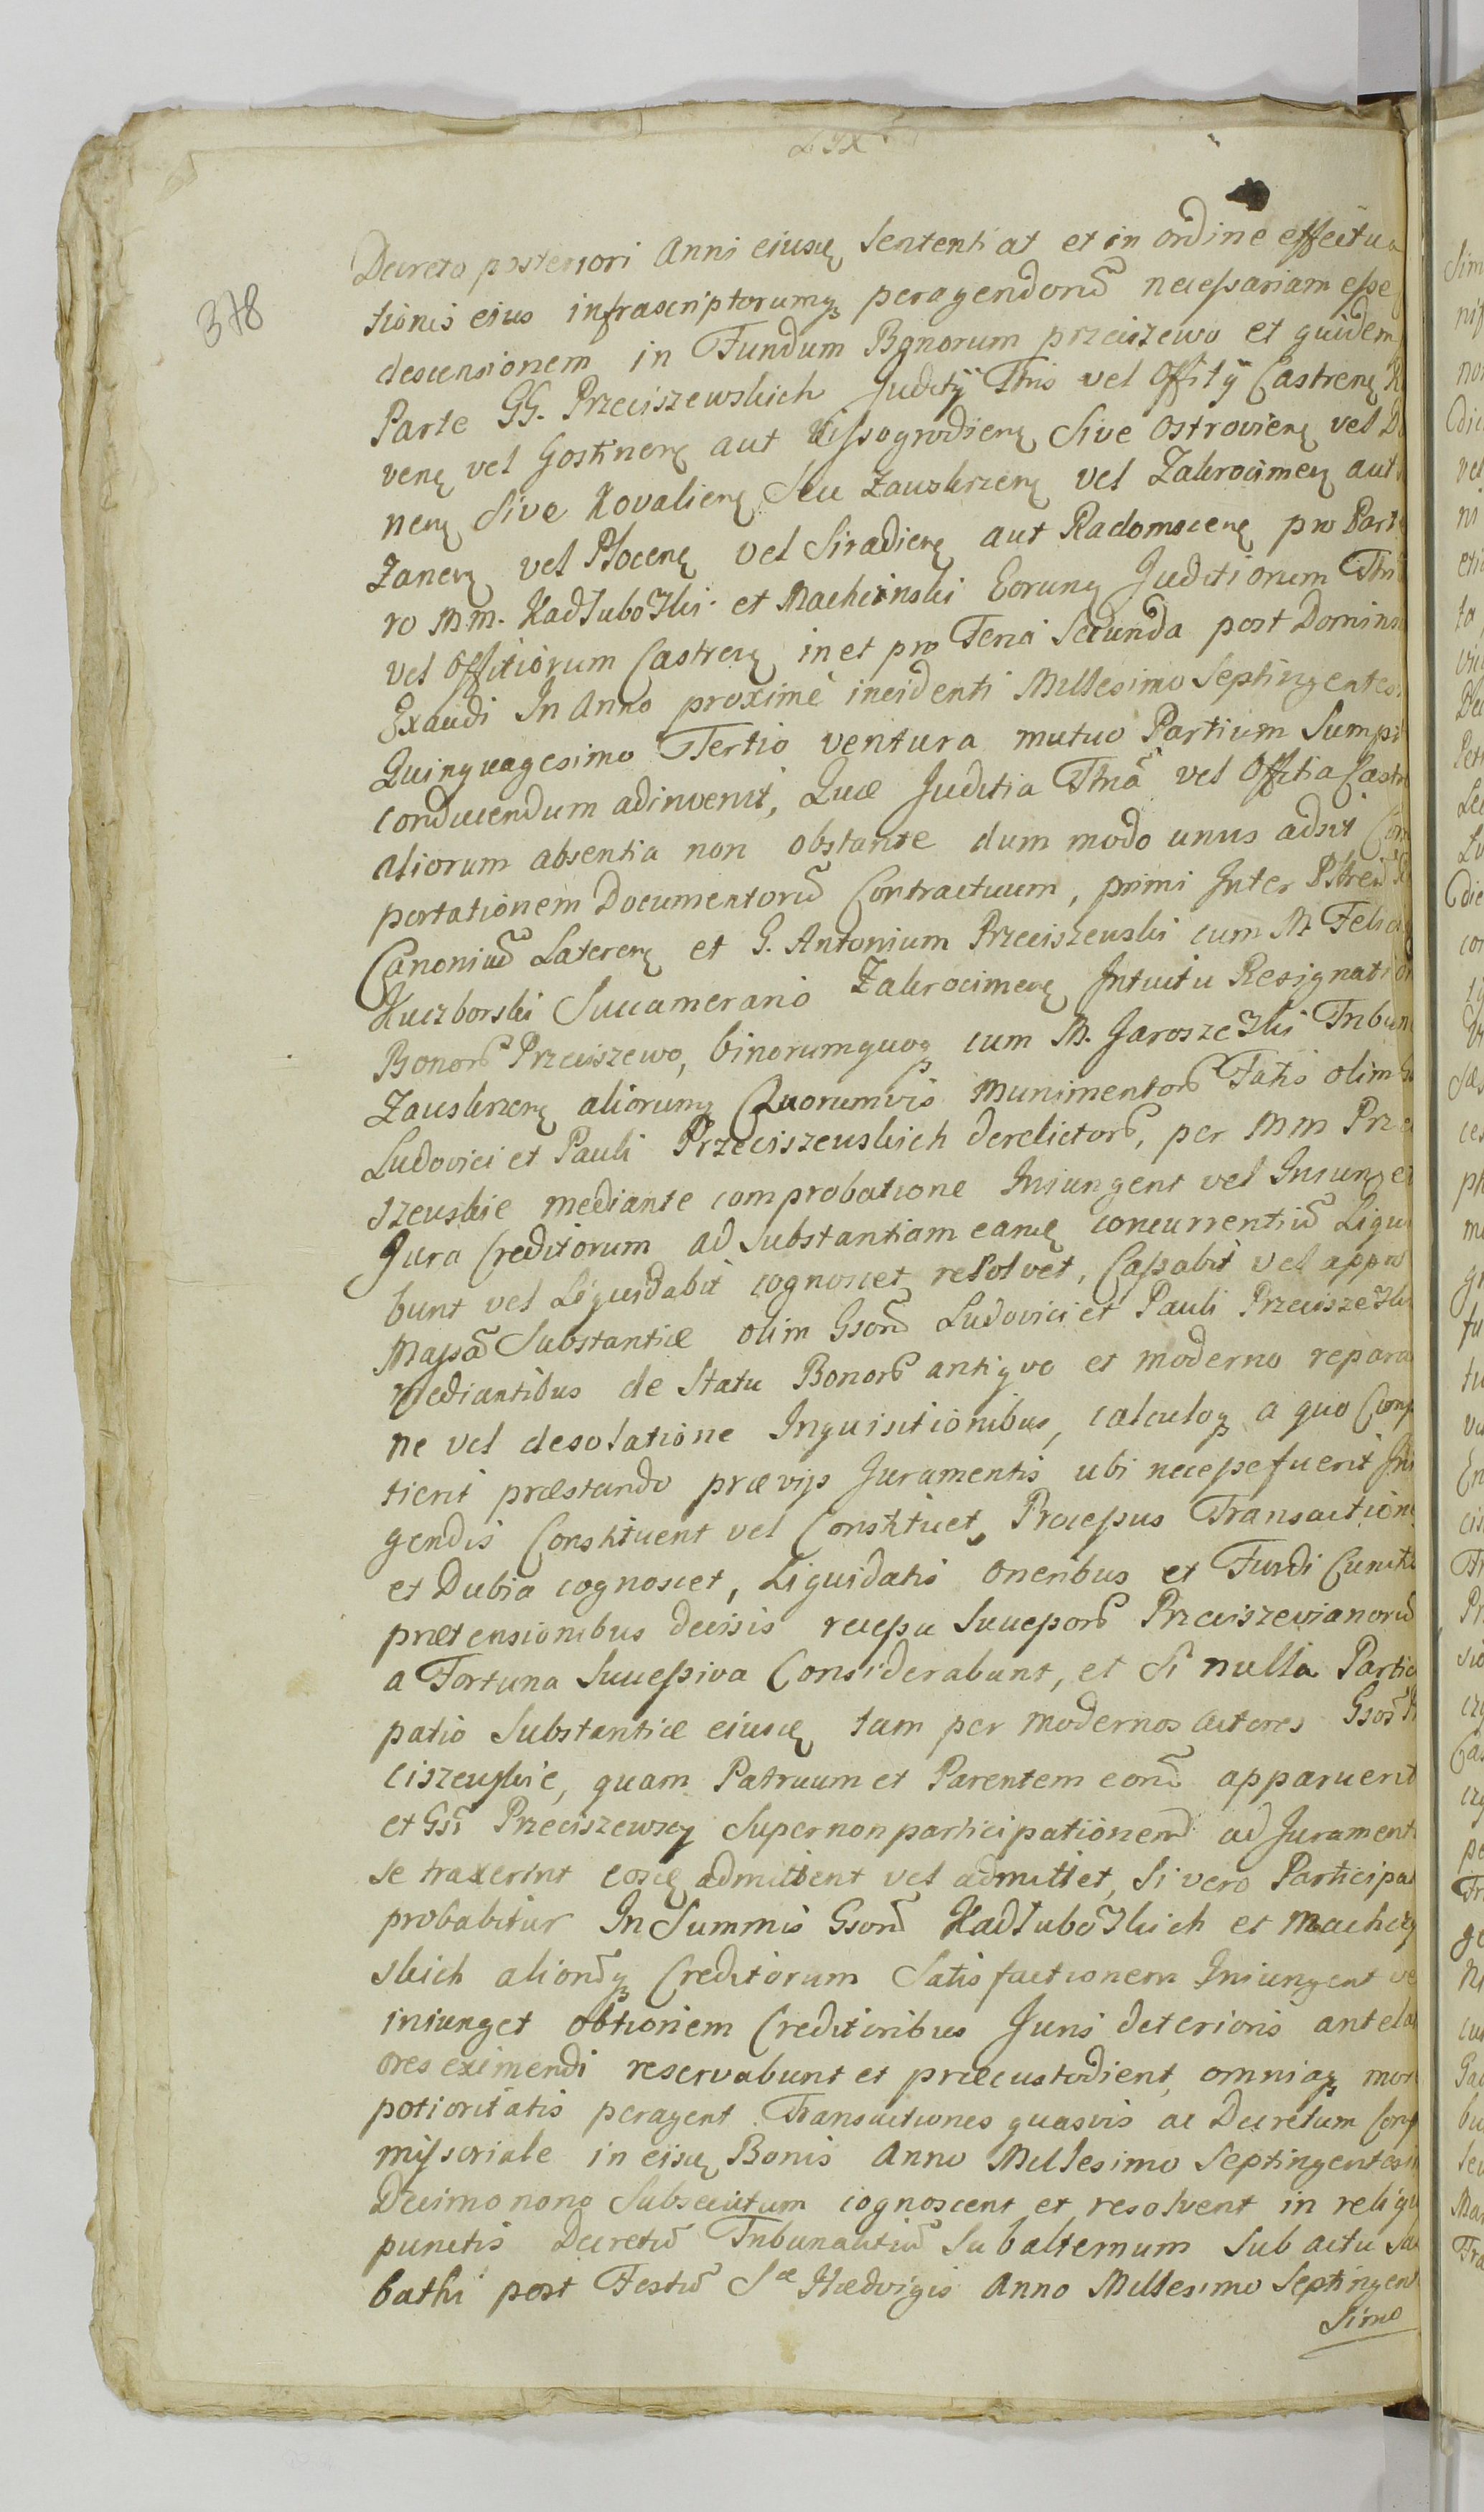 378
Decreto posteriori Anni eiusdę Sententiat et in ordine effectua
tionis eius infrascriptorumqꝫ peragendorũ necessariam esse
descensionem in Fundum Bonorum Przeciszewo et quidem
Parte GG. Przeciszewskich Juditÿ Ttris vel Offitÿ Castrenę
venę vel Gostinenę aut Wissogrodienę Sive Ostrovienę vel
nenę Sive Kovalienę Seu Zauskrzenę vel Zakrocimenę aut
Zanenę vel Plocenę vel Siradienę aut Radomscenę pro Part
ro MM. Kadłubo̅zki et Machcinski Eorunq Juditiorum Ttri
vel Offitiorum Castrenę in et pro Feria Secunda post Domini
Exaudi In Anno proximè incidenti Millesimo Septingentesi
Quinquagesimo Tertio ventura mutuo Partium Sumpt
conducendum adinvenit, Quæ Juditia Ttria vel Offitia Castr
aliorum absentia non obstante dum modo unus adsit Com
portationem Documentorũ Contractuum, primi Inter
Canonicũ Laterenę et G. Antonium Przeciszewski cum M. Felici
Kuczborski Succamerario Zakrocimenę Intuitu Resignation
Bonorũ Przeciszewo, binorumquoqꝫ cum M. Jarosze̅zki Tribun
Zauskrzenę aliorumq Quorumvis Munimentorũ Fatis olim
Ludovici et Pauli Przeciszewskich derelictorũ, per MM Prze
szewskie mediante comprobatione Iniungent vel Iniunget
Jura Creditorum ad Substantiam eandę concurrentiũ Liqui
bunt vel Liquidabit cognoscet resolvet, Cassabit vel appro
Massã Substantiæ olim Gsorũ Ludovici et Pauli Przecisze̅zki
mediantibus de Statu Bonorũ antiquo et moderno repara
ne vel desolatione Inquisitionibus, calculoqꝫ a quo Comp
tierit præstando prævijs Juramentis ubi necesse fuerit Ini
gendis Constituent vel Constituet, Processus Transaction
et Dubia cognoscet, Liquidatis oneribus et Fundi Cunctis
prætensionibus decisis recessu Succesorũ Przeciszewianorũ
a Fortuna Successiva Considerabunt, et Si nulla Partici
patio Substantiæ eiusdę tam per modernos Actores Gsos
ciszewskie, quam Patruum et Parentem eorũ apparuerit
et Gsi Przeciszewscy Super non participationem ad Jurament
se traxerint eosdę admittent vel admittet, Si vero Participa
probabitur In Summis Gsorũ Kadłubo̅zkich et Machcyn
skich aliorũqꝫ Creditorum Satisfactionem Iniungent ve
iniunget obtionem Creditoribus Juris deterioris antela
ores eximendi reservabunt et præcustodient, omniaqꝫ mor
potioritatis peragent. Transactiones quasvis ac Decretum Com
missoriale in eisdę Bonis Anno Millesimo Septingentesi
Decimo nono Subsecutum cognoscent et resolvent in reliqu
punctis Decretũ Tribunalitiũ Subalternum sub actu Sab
bathi post Festũ Sæ Hædvigis Anno Millesimo Septingente
Simo